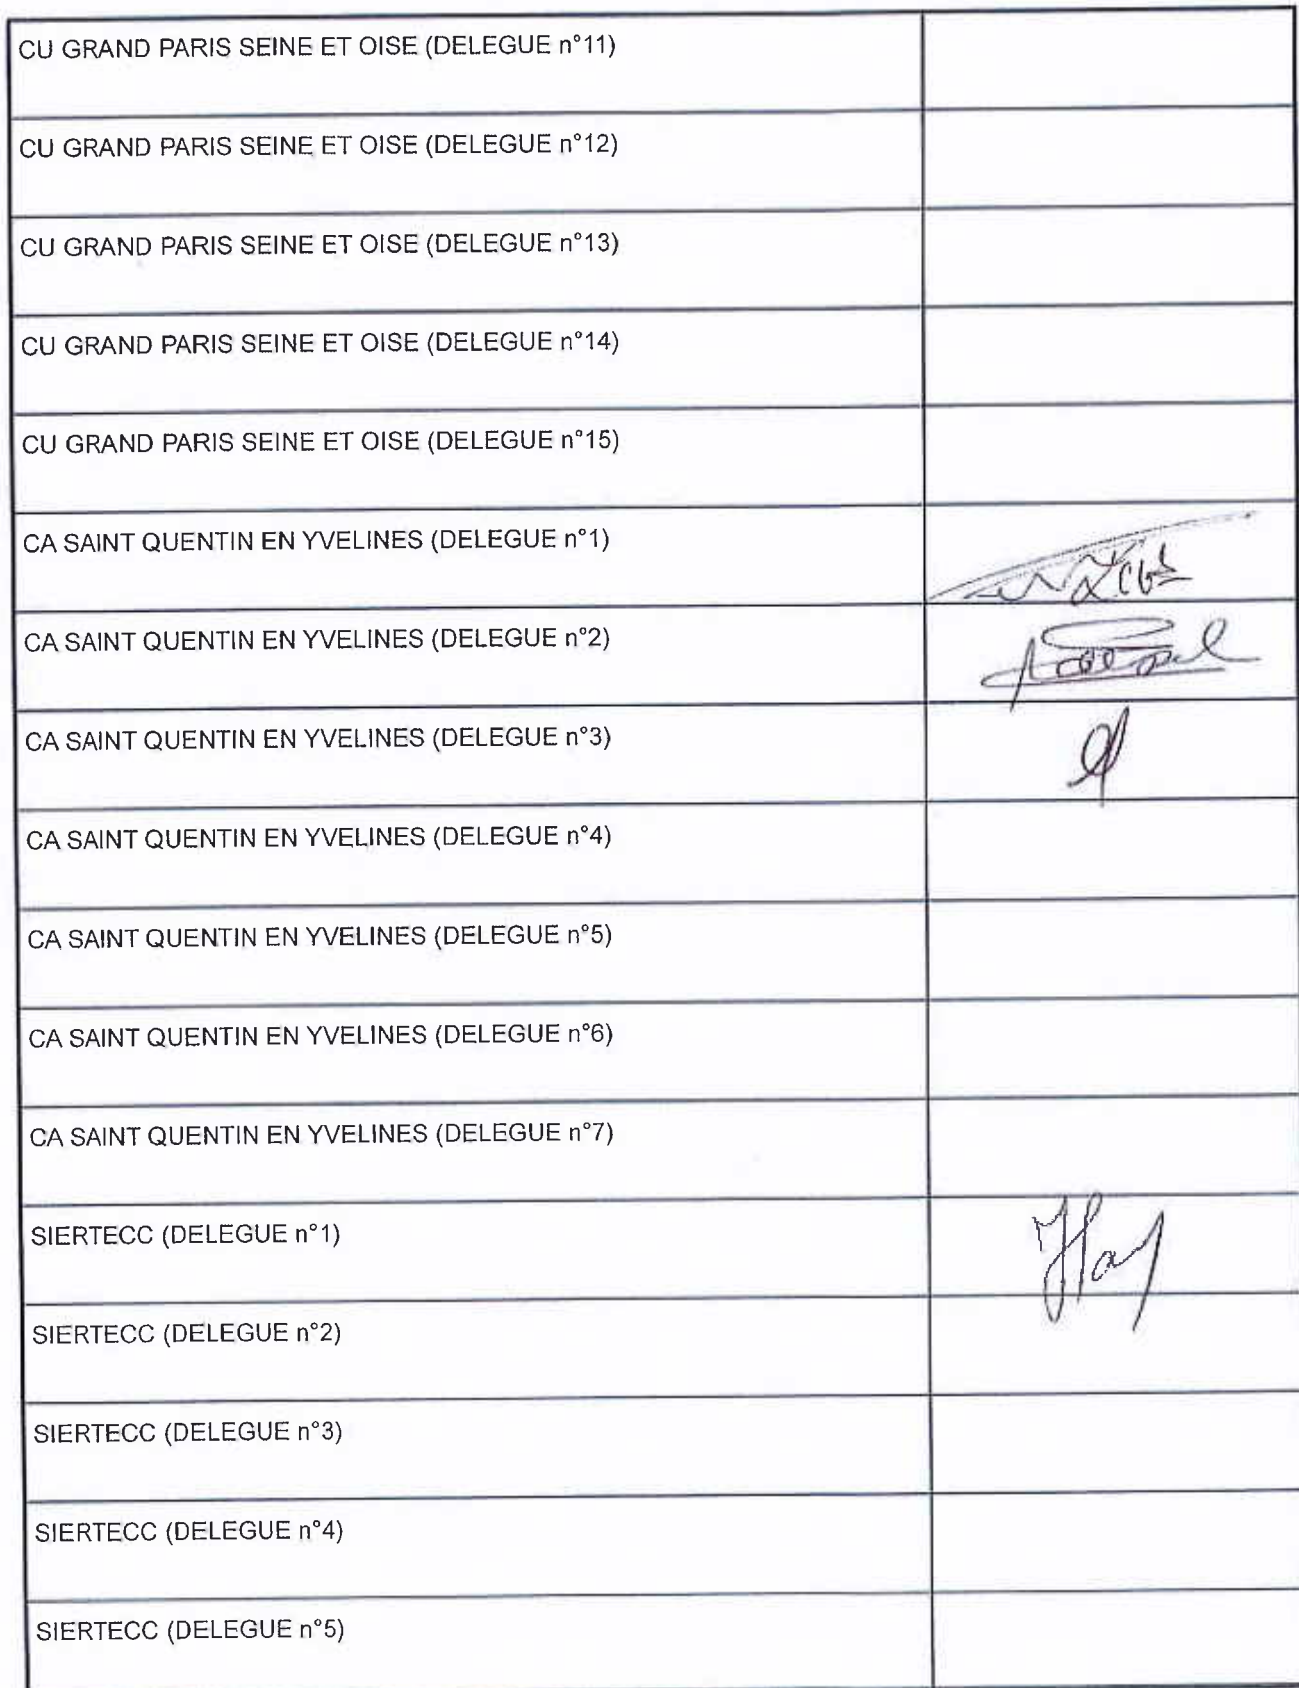 CU GRAND PARIS SEINE ET OISE (DELEGUE n°11)
CU GRAND PARIS SEINE ET OISE (DELEGUE n°12)
CU GRAND PARIS SEINE ET OISE (DELEGUE n°13)
CU GRAND PARIS SEINE ET OISE (DELEGUE n°14)
CU GRAND PARIS SEINE ET OISE (DELEGUE n°15)
CA SAINT QUENTIN EN YVELINES (DELEGUE n°1)
CA SAINT QUENTIN EN YVELINES (DELEGUE n°2)
CA SAINT QUENTIN EN YVELINES (DELEGUE n°3)
CA SAINT QUENTIN EN YVELINES (DELEGUE n°4)
CA SAINT QUENTIN EN YVELINES (DELEGUE n°5)
CA SAINT QUENTIN EN YVELINES (DELEGUE n°6)
CA SAINT QUENTIN EN YVELINES (DELEGUE n°7)
SIERTECC (DELEGUE n°1)
SIERTECC (DELEGUE n°2)
SIERTECC (DELEGUE n°3)
SIERTECC (DELEGUE n°4)
SIERTECC (DELEGUE n°5)